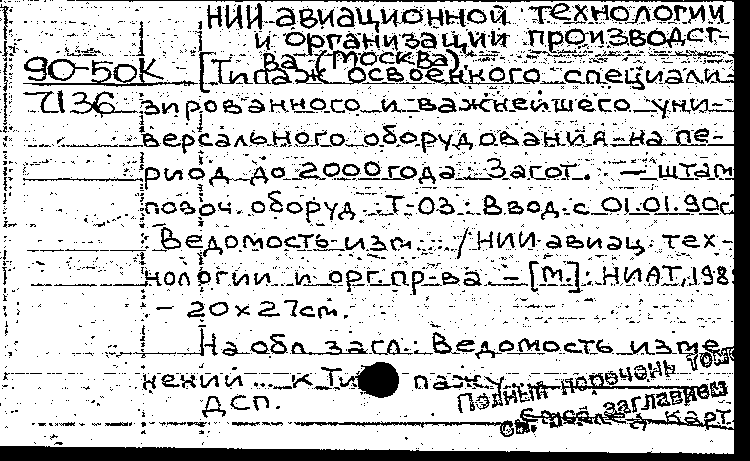 НИИ авиационной технологии
и организации производст-
ва (Москва).
90-50К [Типаж освоенного специали-
7136 зированного и важнейшего уни-
версального оборудования на пе-
риод до 2000 года: Загот. – штам
повоч. оборуд. Т-03: Ввод. с 01.01.90г
: Ведомость изм... / НИИ авиац. тех-
нологии и орг. пр-ва. – [М.]: НИАТ, 198
– 20 х 27 cm.
На обл. загл.: Ведомость изме
нений... к Ти пажу
ДСП.
Полный перечень томо
см. заглавием
карт